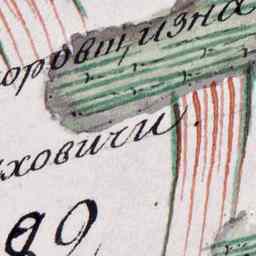 оровщизна
ховичи.
89